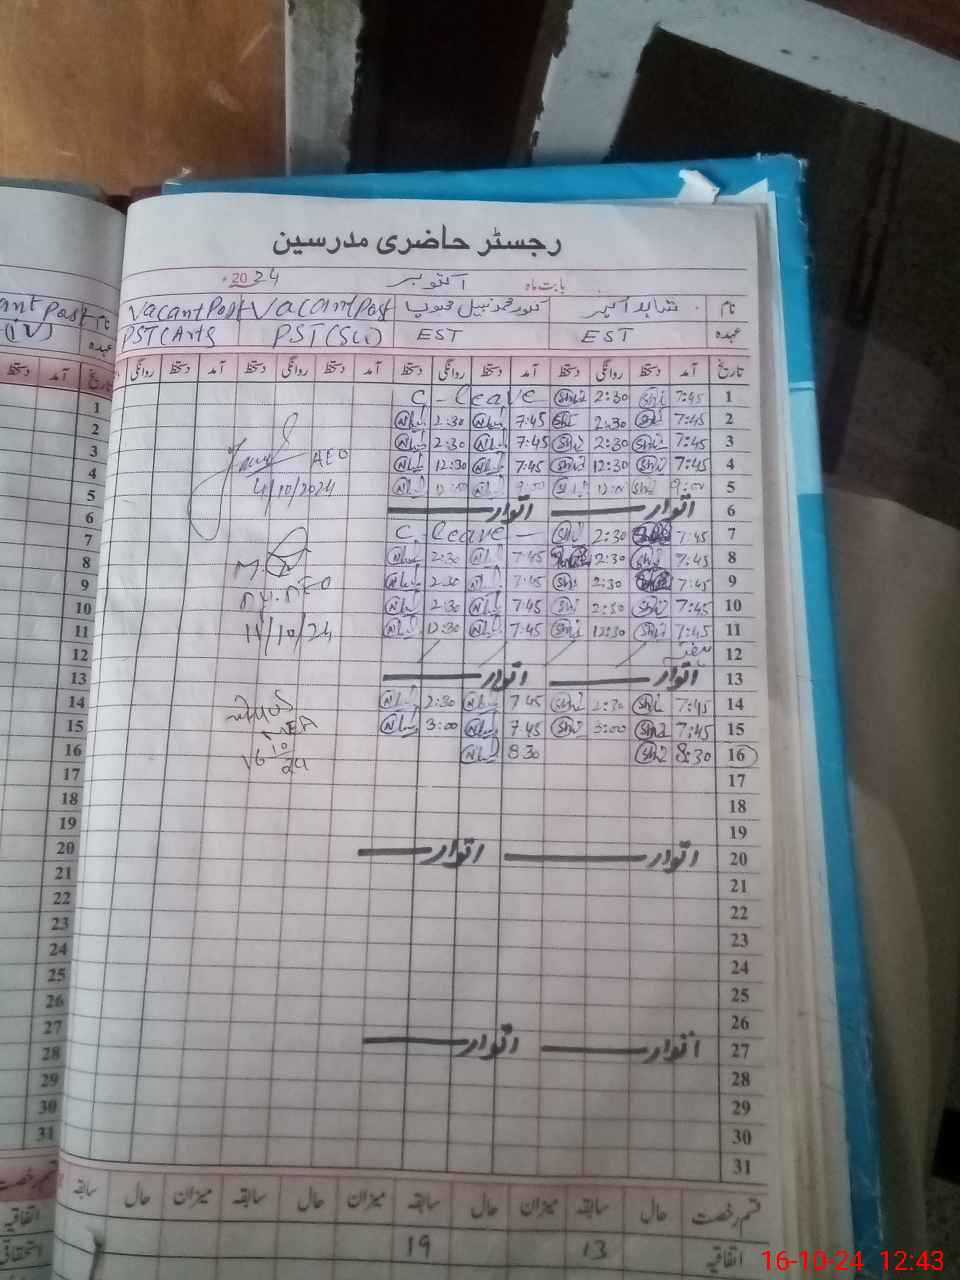 رجسٹر حاضری مدرسین
بابت ماہ اکتوبر 2024
نام شاہد امیر محمد نبیل محبوب Vacant Post Vacant Post
عہدہ EST EST PST (Sci) PST (Arts
تاریخ آمد دستخط روانگی دستخط آمد دستخط روانگی دستخط آمد دستخط روانگی دستخط آمد دستخط روانگی
1 7:45 2:30 C - leave
2 7:45 2:30 7:45 2:30
3 7:45 2:30 7:45 2:30
4 7:45 12:30 7:45 12:30
AEO
4/10/2024
5 9:00 12:00 9:00 12:00
6 اتوار اتوار
7 7:45 2:30 C. leave -
8 7:45 2:30 7:45 2:30
9 7:45 2:30 7:45 2:30
10 7:45 2:30 7:45 2:30
11 7:45 12:30 7:45 12:30
11/10/24
12 ہفتہ
13 اتوار اتوار
14 7:45 2:30 7:45 2:30
15 7:45 3:00 7:45 3:00
MEA
16 8:30 8:30
16/10/24
17
18
19
20 اتوار اتوار
21
22
23
24
25
26
27 اتوار اتوار
28
29
30
31
قسم رخصت حال سابقہ میزان حال سابقہ میزان حال سابقہ میزان حال سابقہ
اتفاقیہ 13 19
ant Post نام
(IV) عہدہ
تاریخ آمد دستخط
1
2
3
4
5
6
7
8
9
10
11
12
13
14
15
16
17
18
19
20
21
22
23
24
25
26
27
28
29
30
31
قسم رخصت
اتفاقیہ
استحقاقی
16-10-24 12:43